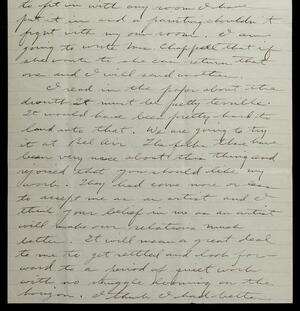 to fit in with any room I have
put it in and a painting shouldn't
fight with my own room. I am
going to write Mrs. Chappell that if
she wants to she can return that
one and I will send another.
I read in the paper about the
drouth. It must be pretty terrible.
It would have been pretty hard to
land into that. We are going to try
it at Bel Air. The folks there have
been very nice about this thing and
rejoiced that you should like my
work. They had come more or less
to accept me as an artist and I
think your belief in me as an artist
will make our relations much
better. It will mean a great deal
to me to get settled and look for-
ward to a period of quiet work
with no struggle looming on the
horizon. I think I had better